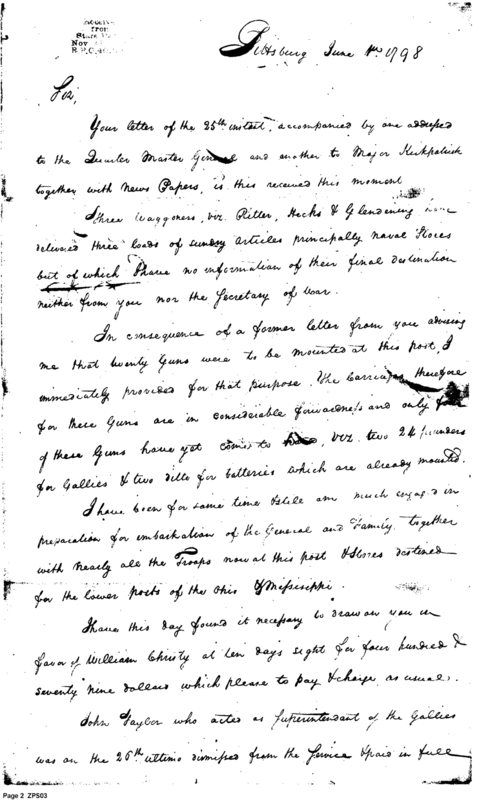 Receiv
from
State
Nov
R.P.O.
Pittsburg June 1st 1798
Sir,
Your letter of the 25th instant, accompanied by one addressed
to the Quarter Master General and another to Major Kirkpatrick
together with News Papers, is this received this moment
Three Waggoners, viz. Ritter, Hecks & Glendening have
delivered three loads of sundry articles principally Naval Stores
but of which I have no information of their final destination
neither from you nor the Secretary of War.
In consequence of a former letter from you advising
me that twenty Guns were to be mounted at this post, I
immediately provided for that purpose. The Carriages therefore
for these Guns are in considerable forwardness and only four
of these Guns have yet come to hand, viz. two 24 pounders
for Gallies & two ditto for batteries which are already mounted.
I have been for some time & still am much engaged in
preparation for embarkation of the General and Family together
with nearly all the Troops now at this post & Stores destined
for the lower posts of the Ohio & Mississippi.
I have this day found it necessary to draw on you in
favor of William Christy at ten days sight for four hundred &
seventy nine dollars which please to pay & charge as usual.
John Taylor who acted as Superintendant of the Gallies
was on the 26th ultimo dismissed from the Service & paid in full
Page 2 ZPS03